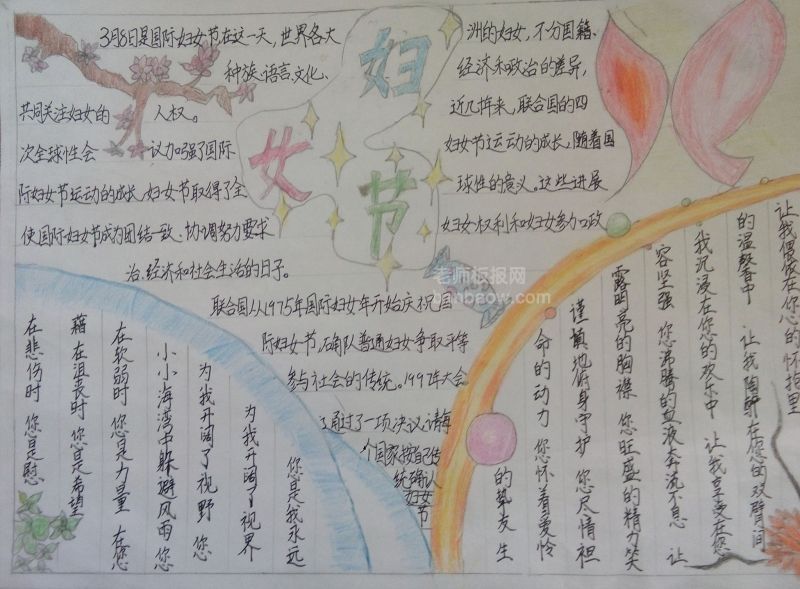 妇
女
节
3月8日是国际妇女节在这一天,世界各大
洲的妇女,不分国籍、
种族、语言、文化、
经济和政治的差异,
共同关注妇女的
人权。
近几拝来,联合国的四
次全球性会
议加强了国际
妇女节运动的成长,随着国
际妇女节运动的成长,妇女节取得了全
球性的意义。这些进展
使国际妇女节成为团结一致、协调努力要求
妇女权利和妇女参加政
治、经济和社会生活的日子。
联合国从1975年国际妇女年开始庆祝国
际妇女节,确认普通妇女争取平等
参与社会的传统。1997年大会
通过了一项决议,请每
个国家按自己传
统确认
妇女
节
让我偎依在你心的怀抱里
的温馨中 让我陶醉在您的双臂间
我沉浸在您的欢乐中 让我享受在您
容坚强 您沸腾的血液奔流不息 让
露明亮的胸襟 您旺盛的精力笑
谨慎地俯身守护 您尽情袒
命的动力 您怀着爱怜
的挚友 生
您是我永远
为我开阔了视界
为我开阔了视野 您
小小海湾中躲避风雨 您
在软弱时 您是力量 在您
藉 在沮丧时 您是希望
在悲伤时 您是慰
老师板报网